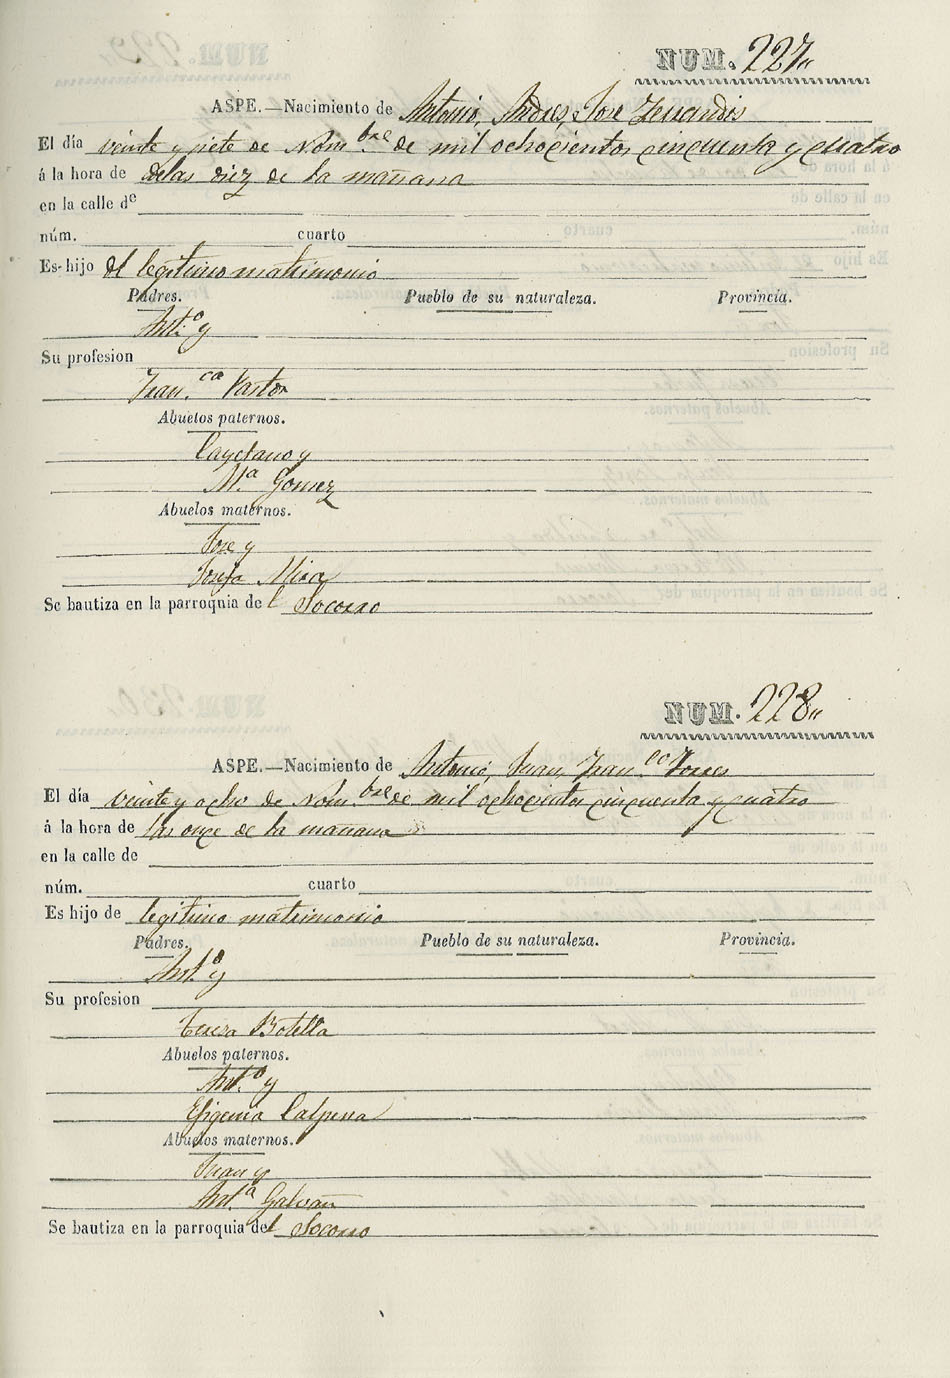 NUM. 227,,
ASPE.—Nacimiento de Antonio, Andres, Jose Ferrandis
El día veinte y siete de Nom.bre de mil ochocientos cincuenta y cuatro
á la hora de delas diez de la mañana
en la calle de
núm. cuarto
Es hijo del legitimo matrimonio
Padres. Pueblo de su naturaleza. Provincia.
Ant.o y
Su profesion
Fran.ca Pastor
Abuelos paternos.
Cayetano y
M.a Gomez
Abuelos maternos.
Jose y
Josefa Mira
Se bautiza en la parroquia del Socorro
NUM. 228,,
ASPE.—Nacimiento de Antonio, Juan, Fran.co Torres
El día veinte y ocho de Nom.bre de mil ochocientos cincuenta y cuatro
á la hora de las once de la mañana
en la calle de
núm. cuarto
Es hijo de legitimo matrimonio
Padres. Pueblo de su naturaleza. Provincia.
Ant.o y
Su profesion
Teresa Botella
Abuelos paternos.
Ant.o y
Efigenia Calpena
Abuelos maternos.
Juan y
Ant.a Galvañ
Se bautiza en la parroquia del Socorro